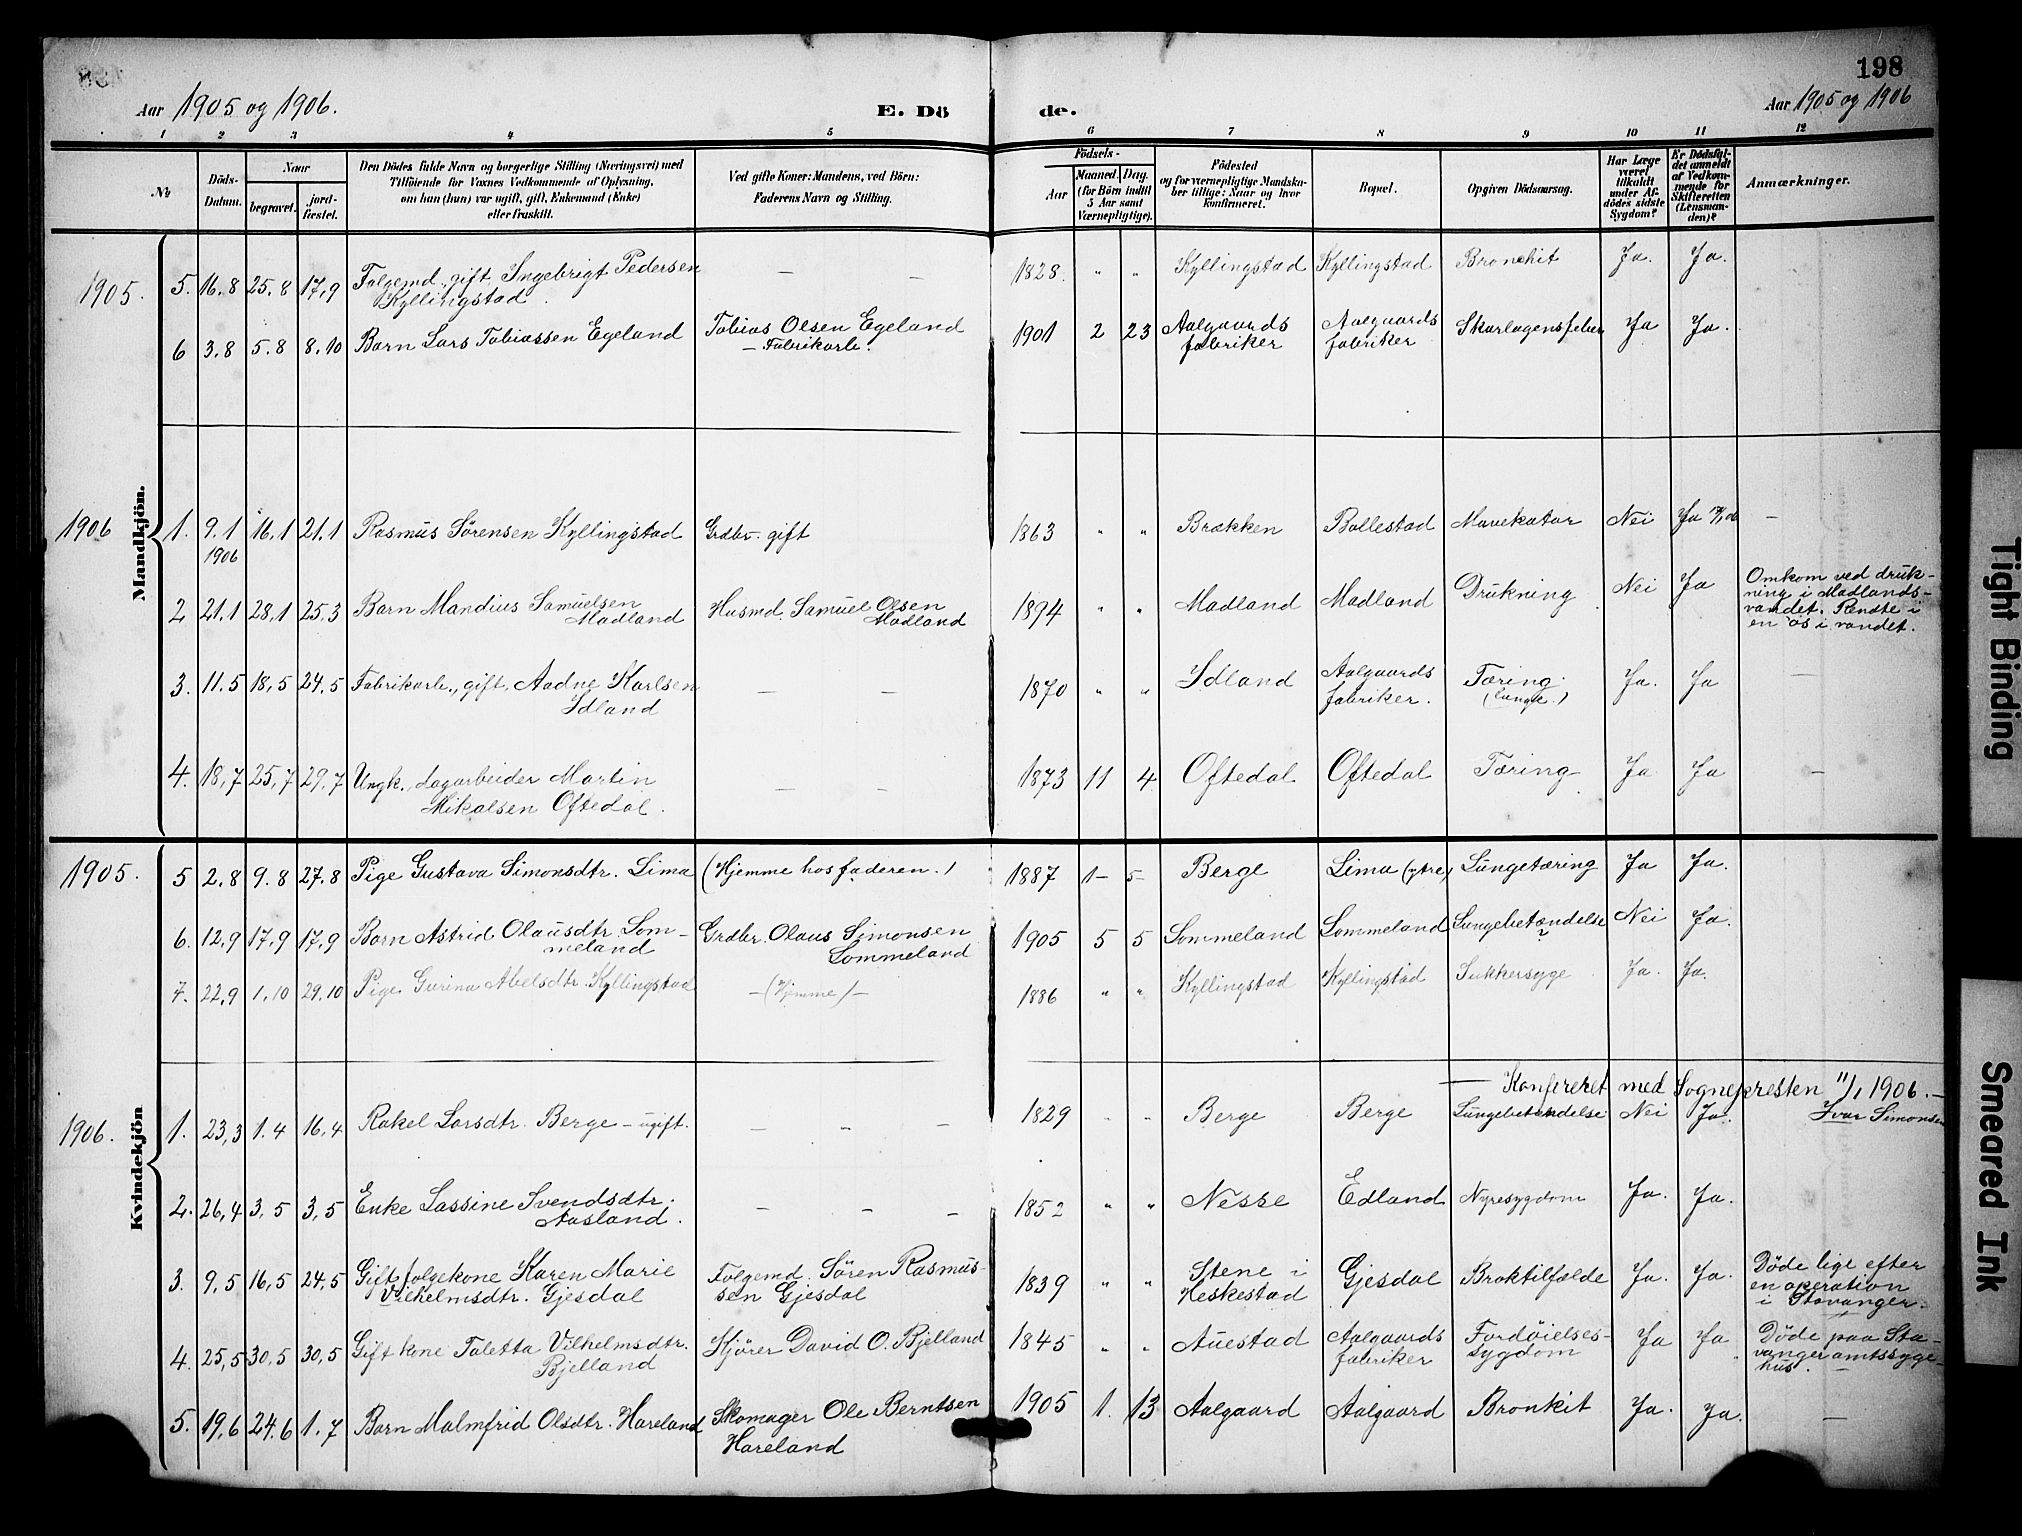 198
Aar 1905 og 1906.
E. Dö
de.
Aar 1905 og 1906
1 2 3 4 5 6 7 8 9 10 11 12
No
Döds-
Datum.
Naar
begravet.
jord-
fæstet.
Den Dödes fulde Navn og borgerlige Stilling (Næringsvei) med
Tilföiende for Voxnes Vedkommende af Oplysning,
om han (hun) var ugift, gift, Enkemand (Enke)
eller fraskilt.
Ved gifte Koner: Mandens, ved Börn:
Faderens Navn og Stilling.
Födsels-
Aar
Maaned. Dag.
(for Börn indtil
5 Aar samt
Værnepligtige).
Födested
og for værnepligtige Mandska-
ber tillige: Naar og hvor
konfirmeret.
Bopæl.
Opgiven Dödsaarsag.
Har Læge
været
tilkaldt
under Af-
dödes sidste
Sygdom?
Er Dödsfal-
det anmeldt
af Vedkom-
mende for
Skifteretten
(Lensman-
den)?
Anmærkninger.
Mandkjön.
1905. 5. 16.8 25.8 17,9 Folgemd., gift Ingebrigt Pedersen — — 1828. " " Kyllingstad Kyllingstad Bronchit Ja. Ja.
Kyllingstad.
6 3.8 5.8 8.10 Barn Lars Tobiassen Egeland Tobias Olsen Egeland 1901 2 23 Aalgaards Aalgaards Skarlagensfeber Ja Ja.
— Fabrikarb. fabriker fabriker
1906 1. 9.1 16,1 21.1 Rasmus Sörensen Kyllingstad Grdbr. gift 1863 " " Brækken Ballestad Mavekatar Nei Ja —
1906
2 21.1 28,1 25.3 Barn Mandius Samuelsen Husmd. Samuel Olsen 1894 " " Madland Madland Drukning Nei Ja Omkom ved druk-
Madland Madland ning i Madlands-
vandet. Rendte i
en ös i vandet.
3. 11.5 18,5 24.5 Fabrikarb., gift, Aadne Karlsen — — 1870 " " Idland Aalgaards Tæring Ja. Ja —
Idland fabriker. (Lunge.)
4. 18,7 25,7 29,7 Ungk., dagarbeider Martin — — 1873 11 4 Oftedal Oftedal Tæring Ja Ja —
Mikalsen Oftedal.
Kvindekjön
1905. 5 2.8 9.8 27.8 Pige Gustava Simonsdtr. Lima (Hjemme hos faderen.) 1887 1- 5- Berge Lima (ytre) Lungetæring Ja Ja.
6. 12,9 17,9 17,9 Barn Astrid Olausdtr. Lom- Grdbr. Olaus Simonsen 1905 5 5 Lommeland Lommeland Lungebetændelse Nei Ja.
meland Lommeland ?
7. 22,9 1.10 29.10 Pige Gurina Abelsdtr. Kyllingstad —(Hjemme)— 1886 " " Kyllingstad Kyllingstad Sukkersyge Ja. Ja.
— Konfereret med Sognepresten 11/1 1906. —
Ivar Simonsen
1906. 1. 23,3 1.4 16,4 Rakel Larsdtr. Berge — ugift. — " — 1829 " " Berge Berge Lungebetændelse Nei Ja.
2. 26,4 3,5 3,5 Enke Lassine Svendsdtr. — — — 1852 " " Nesse Edland Nyresygdom Ja. Ja.
Aasland.
3. 9,5 16,5 24,5 Gift folgekone Karen Marie Folgemd. Sören Rasmus- 1839 " " Stene i Gjesdal Broktilfælde Ja. Ja. Döde lige efter
Vilhelmsdtr. Gjesdal sen Gjesdal Heskestad en operation
i Stavanger.
4. 25,5 30,5 30,5 Gift kone Taletta Vilhelmsdtr. Kjörer David O. Bjelland 1845 " " Auestad Aalgaards Fordöielses- Ja Ja Döde paa Sta-
Bjelland fabriker sygdom vanger amtssyge-
hus. —
5. 19,6 24.6 1.7 Barn Malmfrid Olsdtr. Hareland Skomager Ole Berntsen 1905 1. 13 Aalgaard Aalgaard Bronkit Ja. Ja. —
Hareland
Tight Binding
Smeared Ink